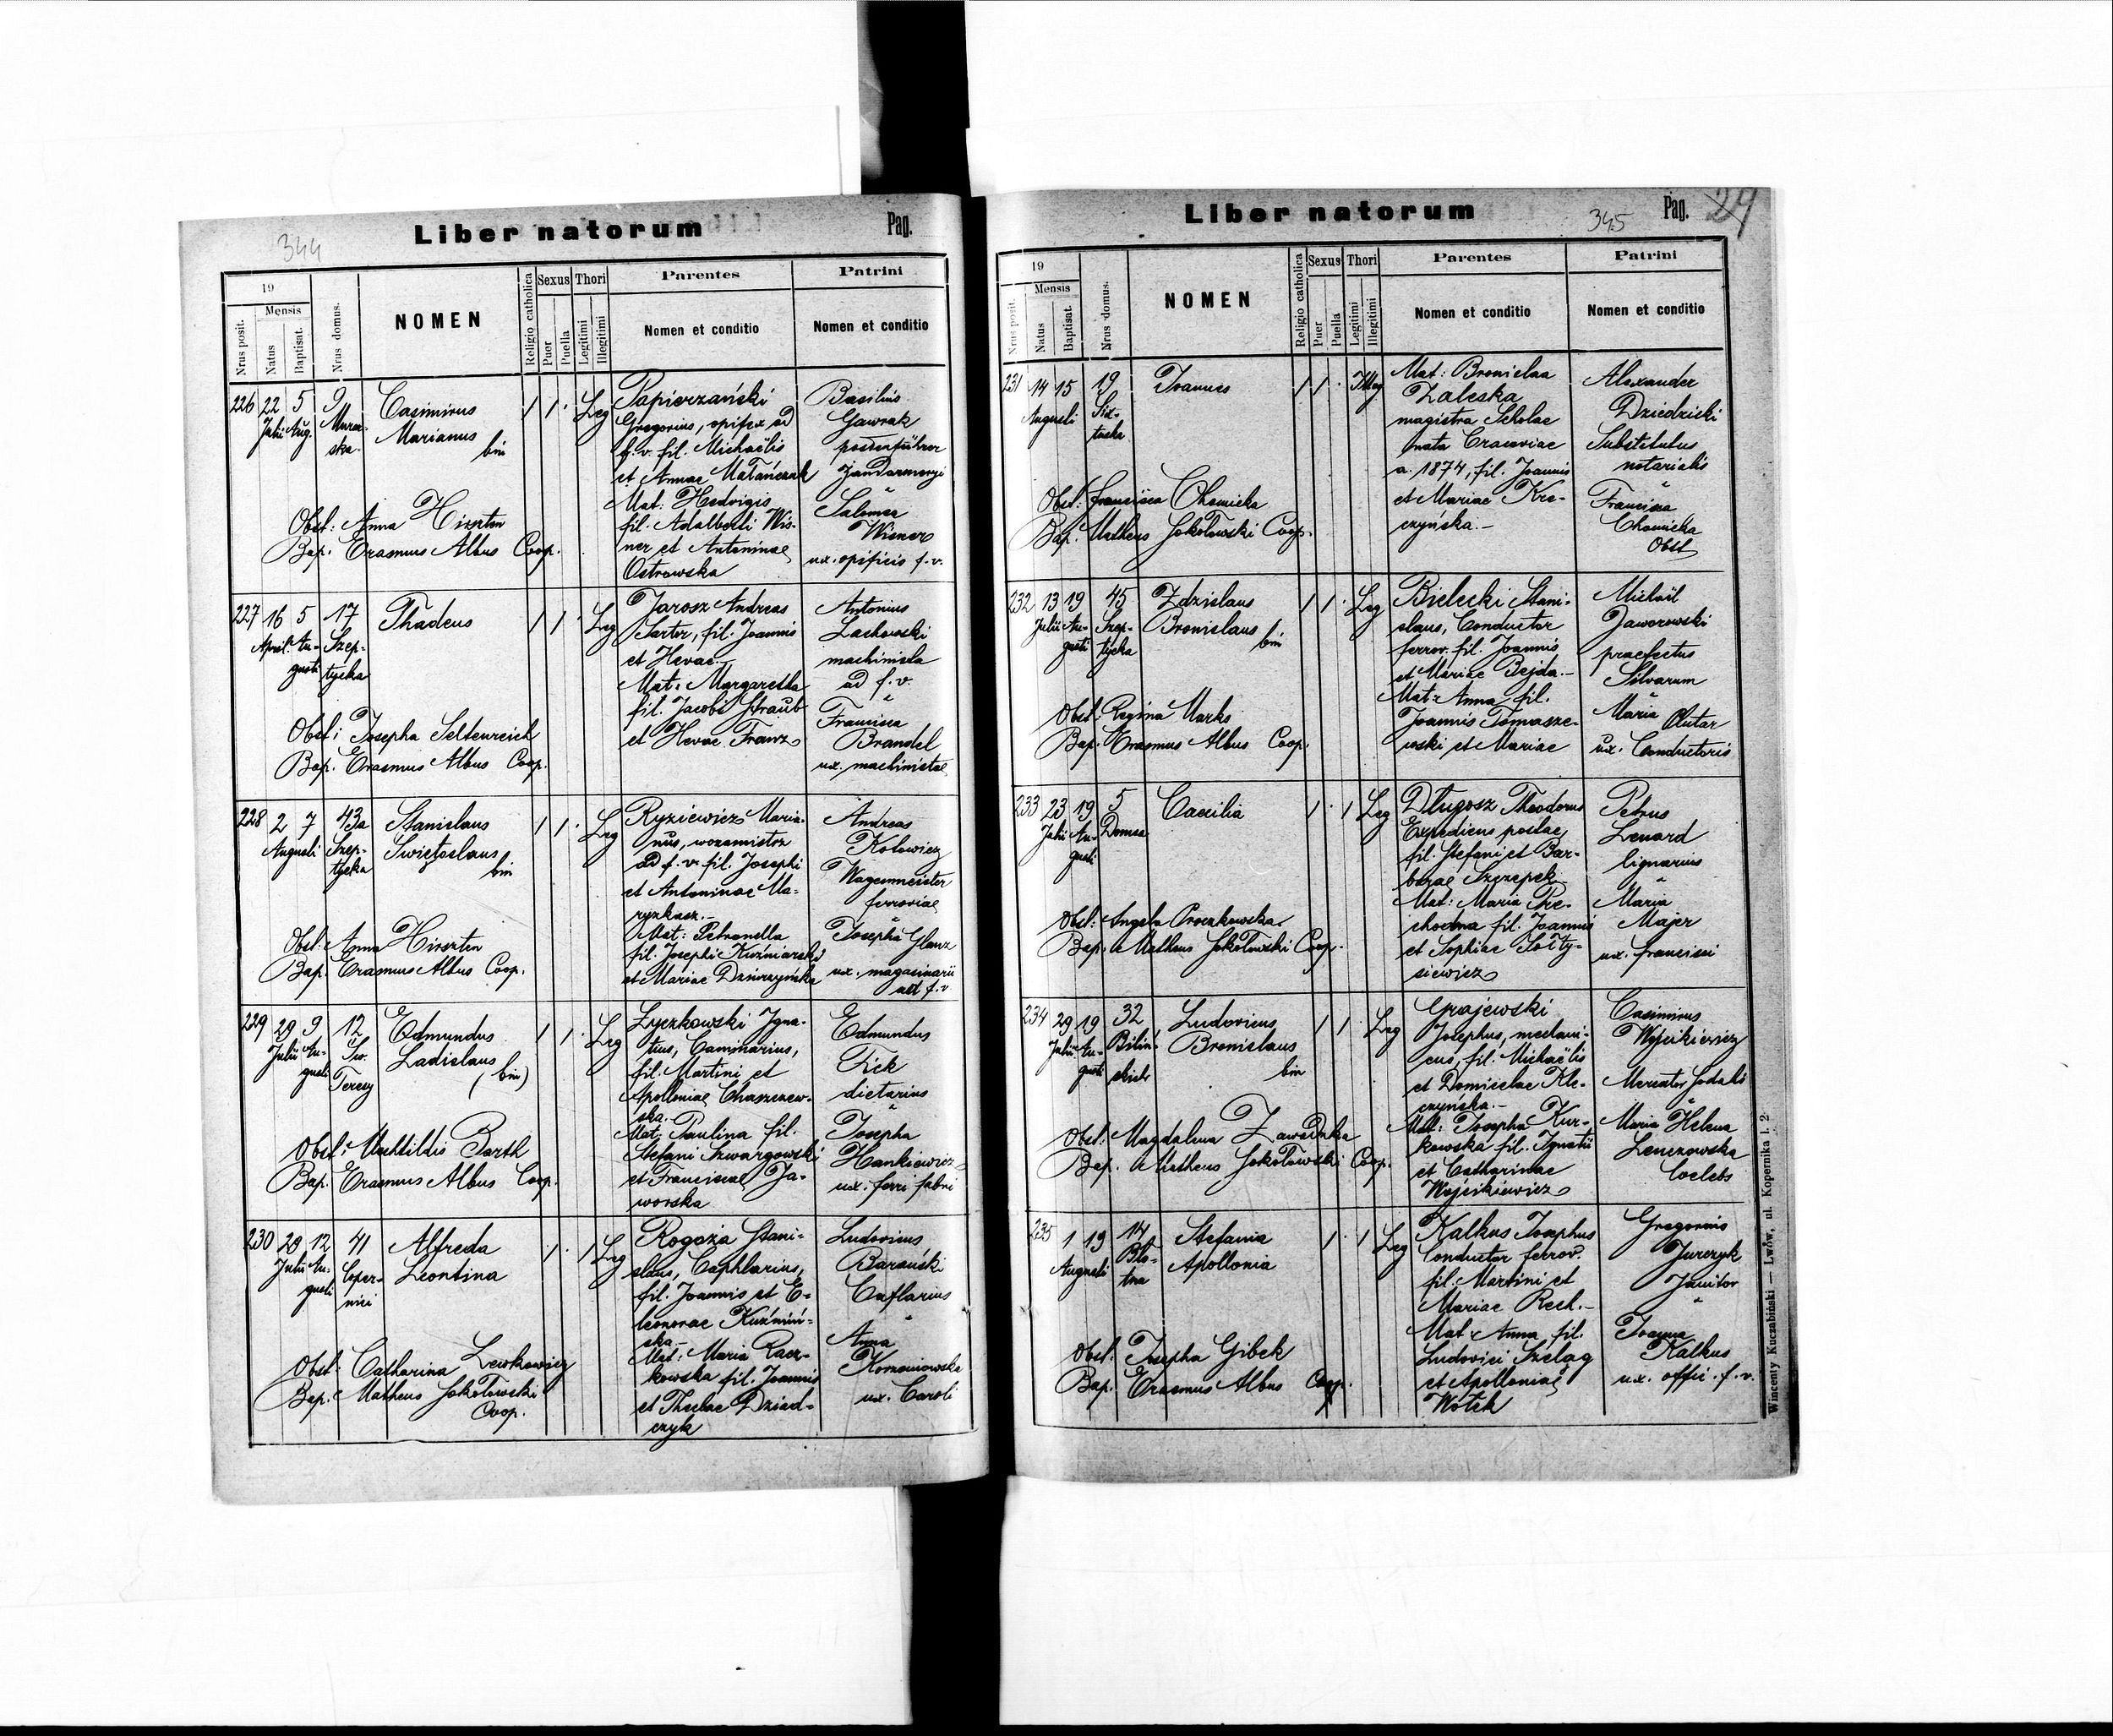 344
Liber natorum
Pag.
19
Mensis
Nrus posit.
Natus
Baptisat.
Nrus domus.
NOMEN
Religio catholica
Sexus
Puer
Puella
Thori
Legitimi
Illegitimi
Parentes
Nomen et conditio
Patrini
Nomen et conditio
226 22 5 9 Casimirus 1 1 · Leg Papierzański Basilius
Julii Aug. Marianus Gregorius, opifex ad Gawrak
ska bin f. v. fil. Michaëlis
et Annae
Mat: Hedvigis Salomea
Obst: Anna Hirszten fil. Adalberti Wis- Wisner
Bap. Erasmus Albus Coop. ner et Antoninae ux. opificis f. v.
Ostrowska
227 16 5 17 Thadeus 1 1 · Leg Jarosz Andreas Antonius
April. Au- Szep- Sartor, fil. Joannis Lachowski
gusti tycka et Hevae machinista
Mat: Margaretha ad f. v.
fil. Jacobi Straub Francisca
Obst: Josepha Seltenreich et Hevae Franz Brandel
Bap. Erasmus Albus Coop. ux. machinistae
228 2 7 43a Stanislaus 1 1 · Leg Ryziewicz Maria- Andreas
Augusti Szep- Swiętoslaus nus, wozomistrz Kotowicz
tycka bin ad f. v. fil. Josephi Wagenmeister
et Antoninae Ma- ferroviae
ryzkasz.-
Obst: Anna Hirszten Mat: Petronella Josepha Glanz
Bap. Erasmus Albus Coop. fil. Josephi Kuźniarski ux. magasinarii
et Mariae ad f. v.
229 29 9 12 Edmundus 1 1 · Leg Łyczkowski Igna- Edmundus
Julii Au- Św. Ladislaus tius, Caminarius,
gusti Teresy (bin) fil. Martini et dietarius
Apolloniae Chaszczew-
ska.-
Mat: Paulina fil. Josepha
Obst: Mechtildis Barth Stefani Szwargowski Hankiewicz
Bap. Erasmus Albus Coop. et Franciscae Ja- ux. ferri fabri
worska
230 29 12 41 Alfreda 1 · 1 Leg Rogoża Stani- Ludovicus
Julii Au- Coper- Leontina slaus, Caphlarius, Barański
gusti nici fil. Joannis et E- Caflarius
leonorae Kuźmiń-
ska- Anna
Obst: Catharina Lewkowicz Mat: Maria Racz- Korzeniowska
Bap. Matheus Sokołowski kowska fil. Joannis ux. Caroli
Coop. et Theclae Dziad-
czyk
Liber natorum
345
Pag.
19
Mensis
Nrus posit.
Natus
Baptisat.
Nrus domus.
NOMEN
Religio catholica
Sexus
Puer
Puella
Thori
Legitimi
Illegitimi
Parentes
Nomen et conditio
Patrini
Nomen et conditio
231 14 15 19 Joannes 1 1 · Illeg Mat: Bronislaa Alexander
Augusti Six- Zaleska Dziedzicki
tuska magistra Scholae Substitutus
nata Cracoviae notarialis
a. 1874, fil. Joannis
Obst: Francisca Chomicka et Mariae Kre- Francisca
Bap. Matheus Sokołowski Coop. czyńska.- Chomicka
Obst
232 13 19 45 Zdzislaus 1 1 · Leg Bielecki Stani- Michaël
Julii Au- Szep- Bronislaus slaus, Conductor Jaworowski
gusti tycka bin ferrov. fil. Joannis praefectus
et Mariae Bejda.- Silvarum
Obst: Regina Marks Mat: Anna fil. Maria
Bap. Erasmus Albus Coop. Joannis Tomasze- ux. Conductoris
wski et Mariae
233 23 19 5 Caecilia 1 · 1 Leg Długosz Theodorus Petrus
Julii Au- Domsa Expediens postae, Lenard
gusti fil. Stefani et Bar- lignarius
barae Szczepek
Mat: Maria Pie- Maria
Obst: Angela Proczkowska chodna fil. Joannis Majer
Bap. Matheus Sokołowski Coop. et Sophiae Sołty- ux. Francisci
siewicz
234 29 19 32 Ludovicus 1 1 · Leg Grajewski Casimirus
Julii Au- Biliń- Bronislaus Josephus, mechani- Wójcikiewicz
gusti skich bin cus, fil. Michaëlis
et Domicelae Kle- Mercator
czyńska.-
Obst: Magdalena Zawadzka Mat: Josepha Kur- Maria Helena
Bap. Matheus Sokołowski Coop. kowska fil. Ignatii Lenczowska
et Catharinae Coelebs
Wójcikiewicz
235 1 19 14 Stefania 1 · 1 Leg Kalkus Josephus Gregorius
Augusti Bło- Apollonia Conductor ferrov. Jurczyk
tna fil. Martini et Janitor
Mariae Rech.-
Mat: Anna fil. Joanna
Obst: Josepha Gibek Ludovici Szeląg Kalkus
Bap. Erasmus Albus Coop. et Apolloniae ux. offic. f. v.
Wołek
Wincenty Kuczabiński — Lwów, ul. Kopernika l. 2